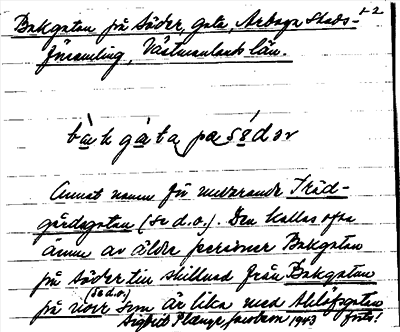 1-2
Bakgatan på Söder, gata, Arboga Stads-
församling, Västmanlands län.
bàk gàta på södər
Annat namn för nuvarande Träd-
gårdsgatan (se d.o.). Den kallas ofta
ännu av äldre personer Bakgatan
på Söder till skillnad från Bakgatan
(se d.o.)
på norr som är lika med
Sigfrid 1943 forts!